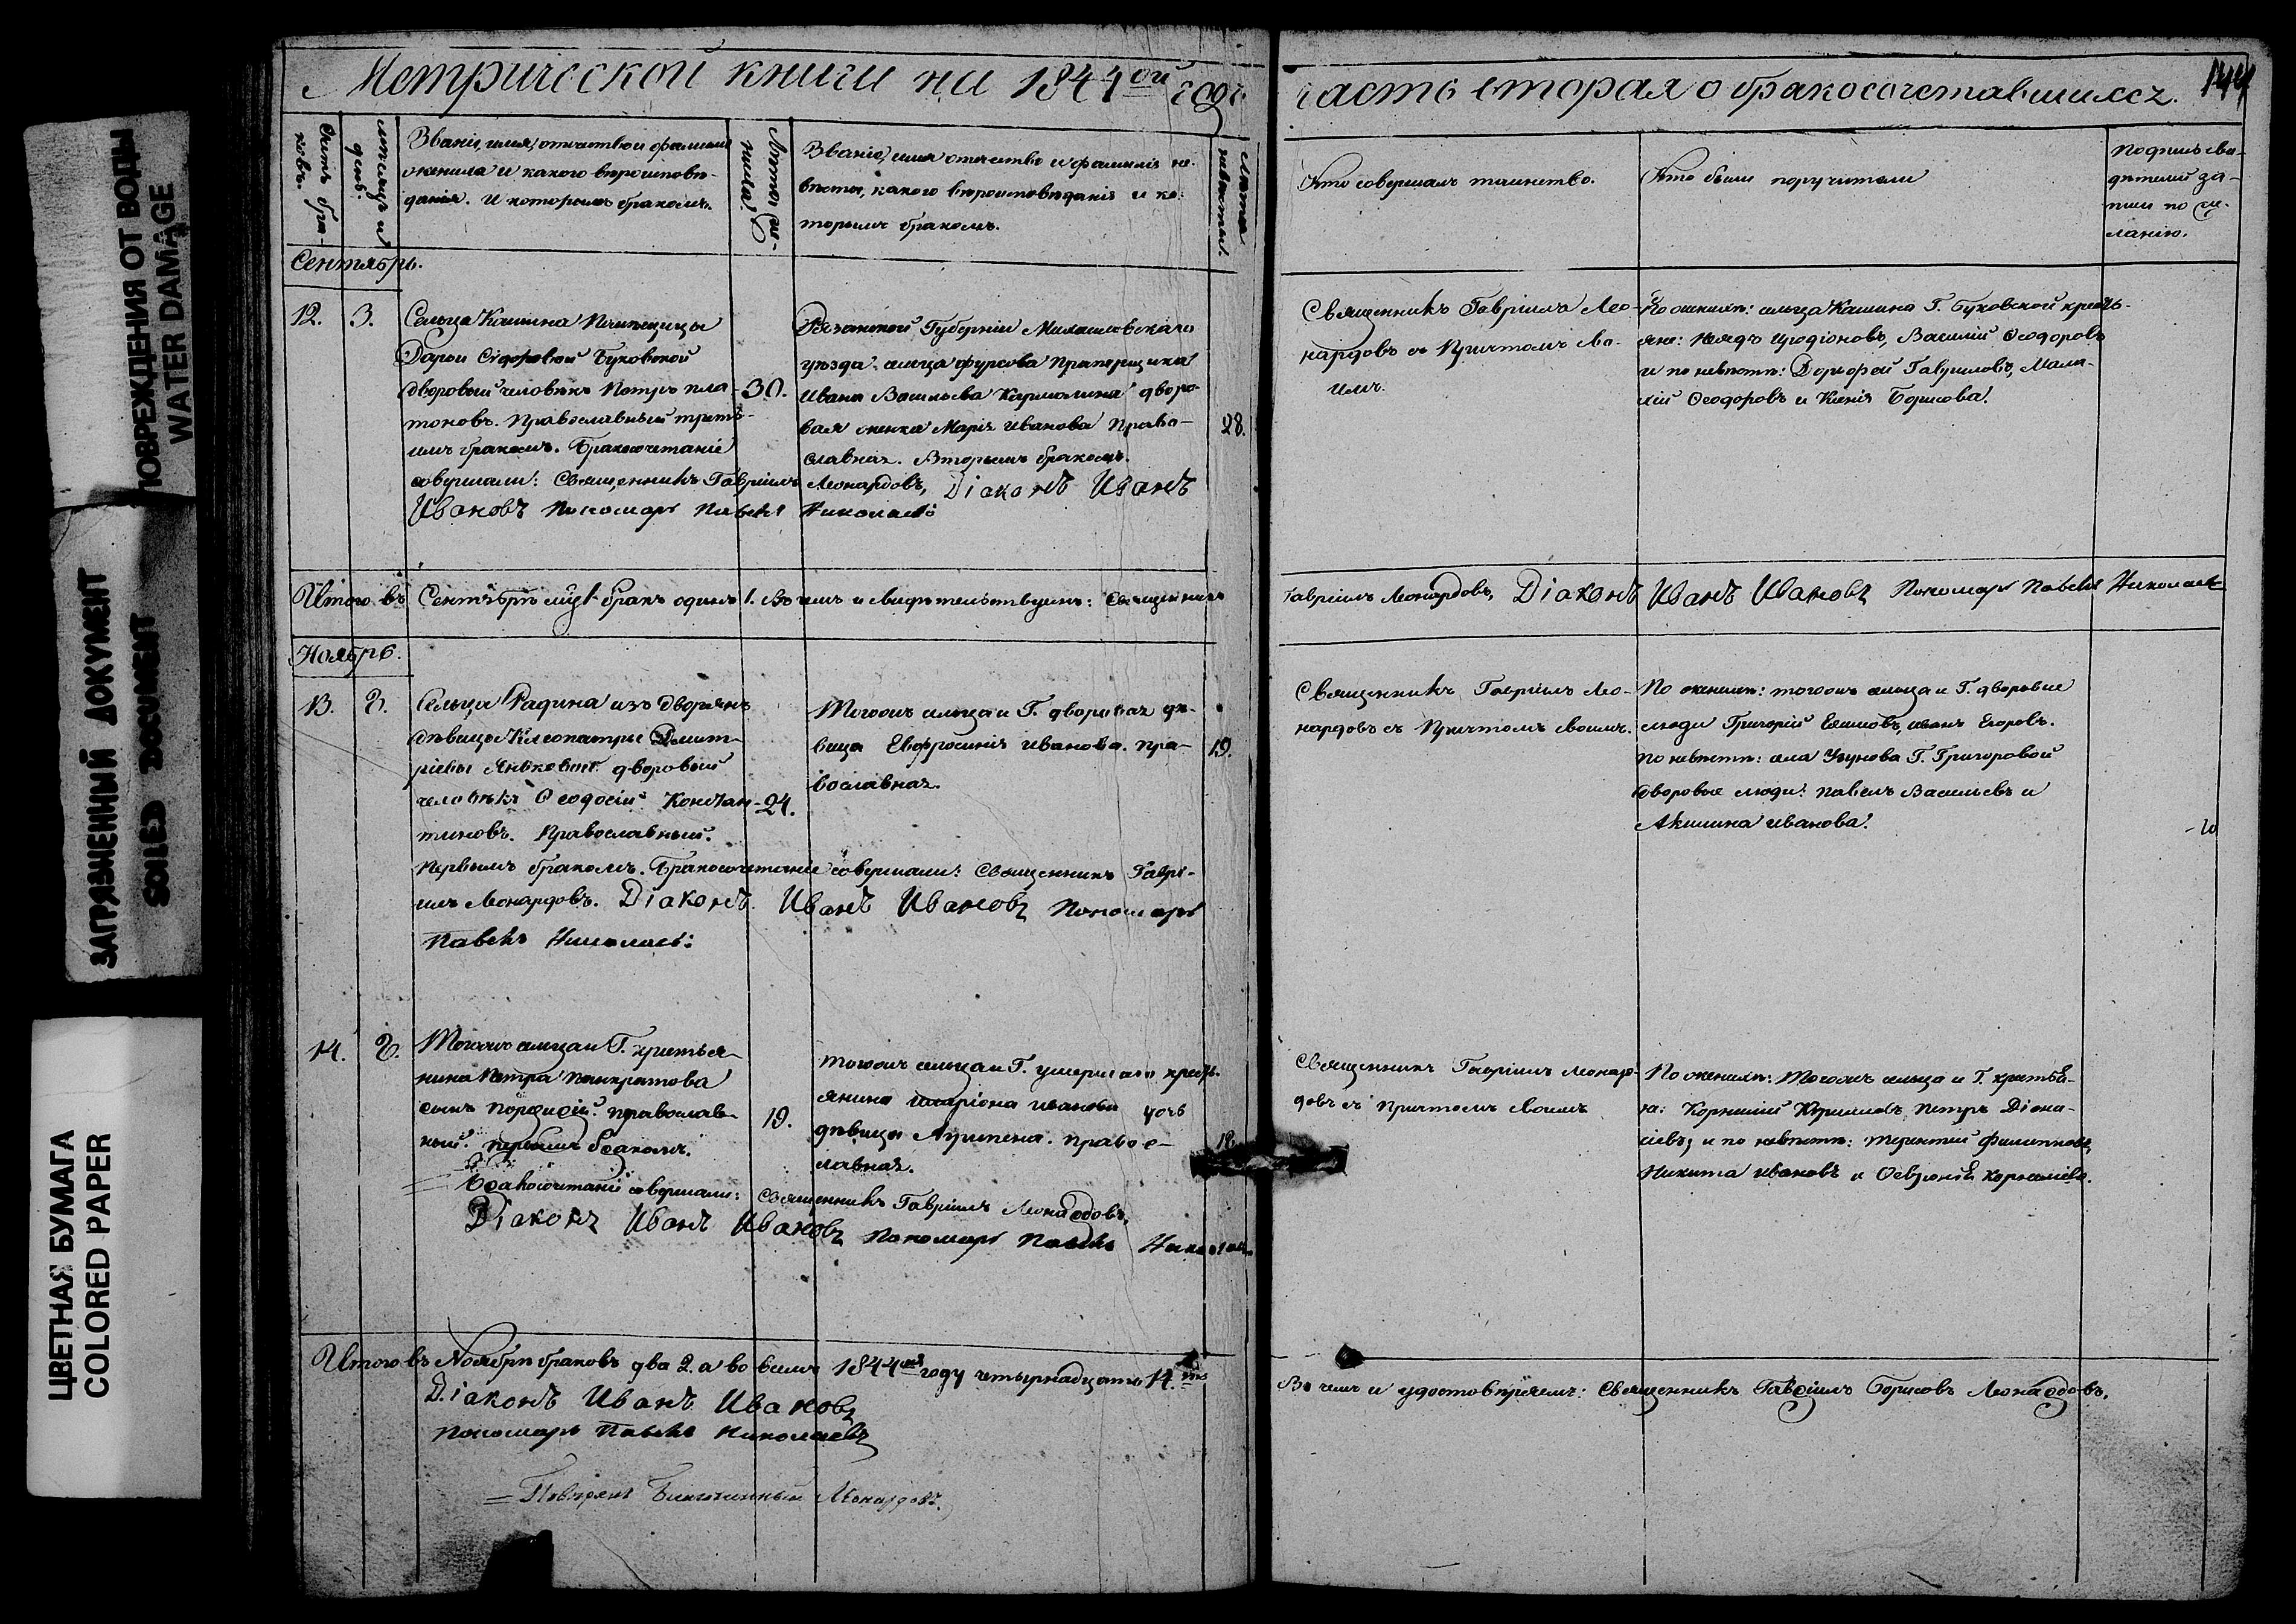 ПОВРЕЖДЕНИЯ ОТ ВОДЫ
WATER DAMAGE
ЗАГРЯЗНЕННЫЙ ДОКУМЕНТ
SOILED DOCUMENT
ЦВЕТНАЯ БУМАГА
COLORED PAPER
Метрической книги на 1844ой годъ
часть вторая о бракосочетавшихся.
144
Счетъ бра-
ковъ.
мѣсяцъ и
день.
Званіе, имя, отчество и фамилія
жениха и какого вѣроисповѣ-
данія. И которымъ бракомъ.
Лѣта же-
ниха.
Званіе, имя отечество и фамилія не-
вѣсты, какого вѣроисповѣданія и ко-
торымъ бракомъ.
Лѣта
невѣсты.
Кто совершалъ таинство.
Кто были поручители
Подпись сви-
дѣтелей за-
писи по же-
ланію.
Сентябрь.
12.
3.
Сельца Кашина
Дарьи Сидоровой Буковской
дворовый человѣкъ Петръ Пла-
тоновъ. Православный треть-
имъ бракомъ. Бракосочетаніе
совершали: Священникъ Гавріилъ Леонардовъ, Діаконъ Иванъ
Ивановъ Пономарь Павелъ Николаевъ
30.
Рязанской Губерніи
уѣзда: сельца Фурсова Прапорщика
Ивана Васильева Кармалина дворо-
вая женка Марія Иванова Право-
славная. Вторымъ бракомъ.
28.
Священникъ Гавріилъ Лео-
нардовъ съ Причтомъ Сво-
имъ.
По женихѣ: сельца Кашина Г. Буковской кресть-
яне: Василий Ѳеодоровъ
и по невѣстѣ: Дорофей Гавриловъ,
Ѳеодоровъ и Ксенія Борисова.
Итого въ Сентябрѣ бракъ одинъ 1. Въ чемъ и свидѣтельствуемъ: Священникъ
Гавріилъ Леонардовъ, Діаконъ Иванъ Ивановъ Пономарь Павелъ Николаевъ
Ноябрь.
13.
8.
Сельца Радина изъ дворянъ
дѣвицы Клеопатры Дмит-
ріевы дворовый
человѣкъ Ѳеодосій Констан-
тиновъ. Православный.
Первымъ бракомъ. Бракосочетаніе совершали: Священникъ Гаврі-
илъ Леонардовъ. Діаконъ Иванъ Ивановъ Пономарь
Павелъ Николаевъ.
24.
Тогожъ сельца и Г. дворовая дѣ-
вица Евфросинія Иванова. Пра-
вославная.
19.
Священникъ Гавріилъ Лео-
нардовъ съ Причтомъ своимъ.
По женихѣ: тогожъ сельца и Г. дворовые
люди Григорій Ефимовъ, Иванъ Егоровъ.
По невѣстѣ: села Г. Григоровой
дворовые люди: Павелъ Васильевъ и
Акилина Иванова.
14.
8.
Тогожъ сельца и Г. крестья-
нина Петра Панкратова
сынъ Порфирій православ-
ный. первымъ бракомъ.
Бракосочетаніе совершали: Священникъ Гавріилъ Леонардовъ,
Діаконъ Иванъ Ивановъ Пономарь Павелъ Николаевъ
19.
тогожъ сельца и Г. умершаго кресть-
янина Иларіона Иванова дочь
дѣвица Агрипена. православ-
лавная.
18.
Священникъ Гавріилъ Леонар-
довъ съ Причтомъ своимъ
По женихѣ: Тогожъ сельца и Г. крестья-
не: Корнилій Петръ Діони-
сіевъ, и по невѣстѣ: Терентій Филипповъ,
Никита Ивановъ и Ѳевронія Корнилиева.
Итого въ Ноябрѣ браковъ два 2. а во всемъ 1844мъ году четырнадцать 14.
Въ чемъ и удостовѣряемъ: Священникъ Гавріилъ Борисовъ Леонардовъ.
Діаконъ Иванъ Ивановъ
Пономарь Павелъ Николаевъ
Повѣрялъ Благочинный Леонардовъ.